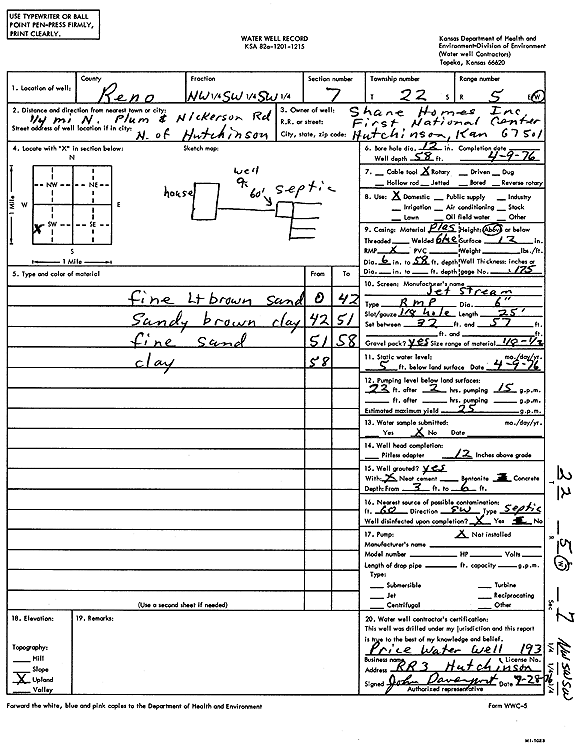 USE TYPEWRITER OR BALL
POINT PEN-PRESS FIRMLY,
PRINT CLEARLY.
WATER WELL RECORD
KSA 82a-1201-1215
Kansas Department of Health and
Environment-Division of Environment
(Water well Contractors)
Topeka, Kansas 66620
1. Location of well: County Reno Fraction NW 1/4 SW 1/4 SW 1/4 Section number 7 Township number T 22 S Range number R 5 E/W
2. Distance and direction from nearest town or city: 1/4 mi N. Plum & Nickerson Rd
Street address of well location if in city: N. of Hutchinson
3. Owner of well: Shane Homes Inc
R.R. or street: First National Center
City, state, zip code: Hutchinson, Kan 67501
4. Locate with "X" in section below:
N
NW NE
W E
SW SE
X
S
1 Mile
1 Mile
Sketch map:
well
house
60'
septic
6. Bore hole dia. 12 in. Completion date
Well depth 58 ft. 4-9-76
7. Cable tool X Rotary Driven Dug
Hollow rod Jetted Bored Reverse rotary
8. Use: X Domestic Public supply Industry
Irrigation Air conditioning Stock
Lawn Oil field water Other
9. Casing: Material Plas Height: Above or below
Threaded Welded Glue Surface 12 in.
RMP X PVC Weight lbs./ft.
Dia. 6 in. to 58 ft. depth Wall Thickness: inches or
Dia. in. to ft. depth gage No. .175
5. Type and color of material From To
fine Lt brown sand 0 42
Sandy brown clay 42 51
fine sand 51 58
clay 58
(Use a second sheet if needed)
10. Screen: Manufacturer's name
Jet Stream
Type RMP Dia. 6"
Slot/gauze 1/8 hole Length 25'
Set between 32 ft. and 57 ft.
ft. and ft.
Gravel pack? yes Size range of material 1/8-1/2
11. Static water level: mo./day/yr.
5 ft. below land surface Date 4-9-76
12. Pumping level below land surfaces:
22 ft. after 2 hrs. pumping 15 g.p.m.
ft. after hrs. pumping g.p.m.
Estimated maximum yield 25 g.p.m.
13. Water sample submitted: mo./day/yr.
Yes X No Date
14. Well head completion:
Pitless adapter 12 Inches above grade
15. Well grouted? yes
With: X Neat cement Bentonite Concrete
Depth: From 3 ft. to 6 ft.
16. Nearest source of possible contamination:
ft. 60 Direction SW Type Septic
Well disinfected upon completion? X Yes No
17. Pump: X Not installed
Manufacturer's name
Model number HP Volts
Length of drop pipe ft. capacity g.p.m.
Type:
Submersible Turbine
Jet Reciprocating
Centrifugal Other
18. Elevation:
Topography:
Hill
Slope
X Upland
Valley
19. Remarks:
20. Water well contractor's certification:
This well was drilled under my jurisdiction and this report
is true to the best of my knowledge and belief.
Price Water Well 193
Business name License No.
Address RR3 Hutchinson
Signed John Davenport Date 9-28-76
Authorized representative
Forward the white, blue and pink copies to the Department of Health and Environment
Form WWC-5
T 22 R 5 W Sec 7 NW SW SW
1/4 1/4 1/4